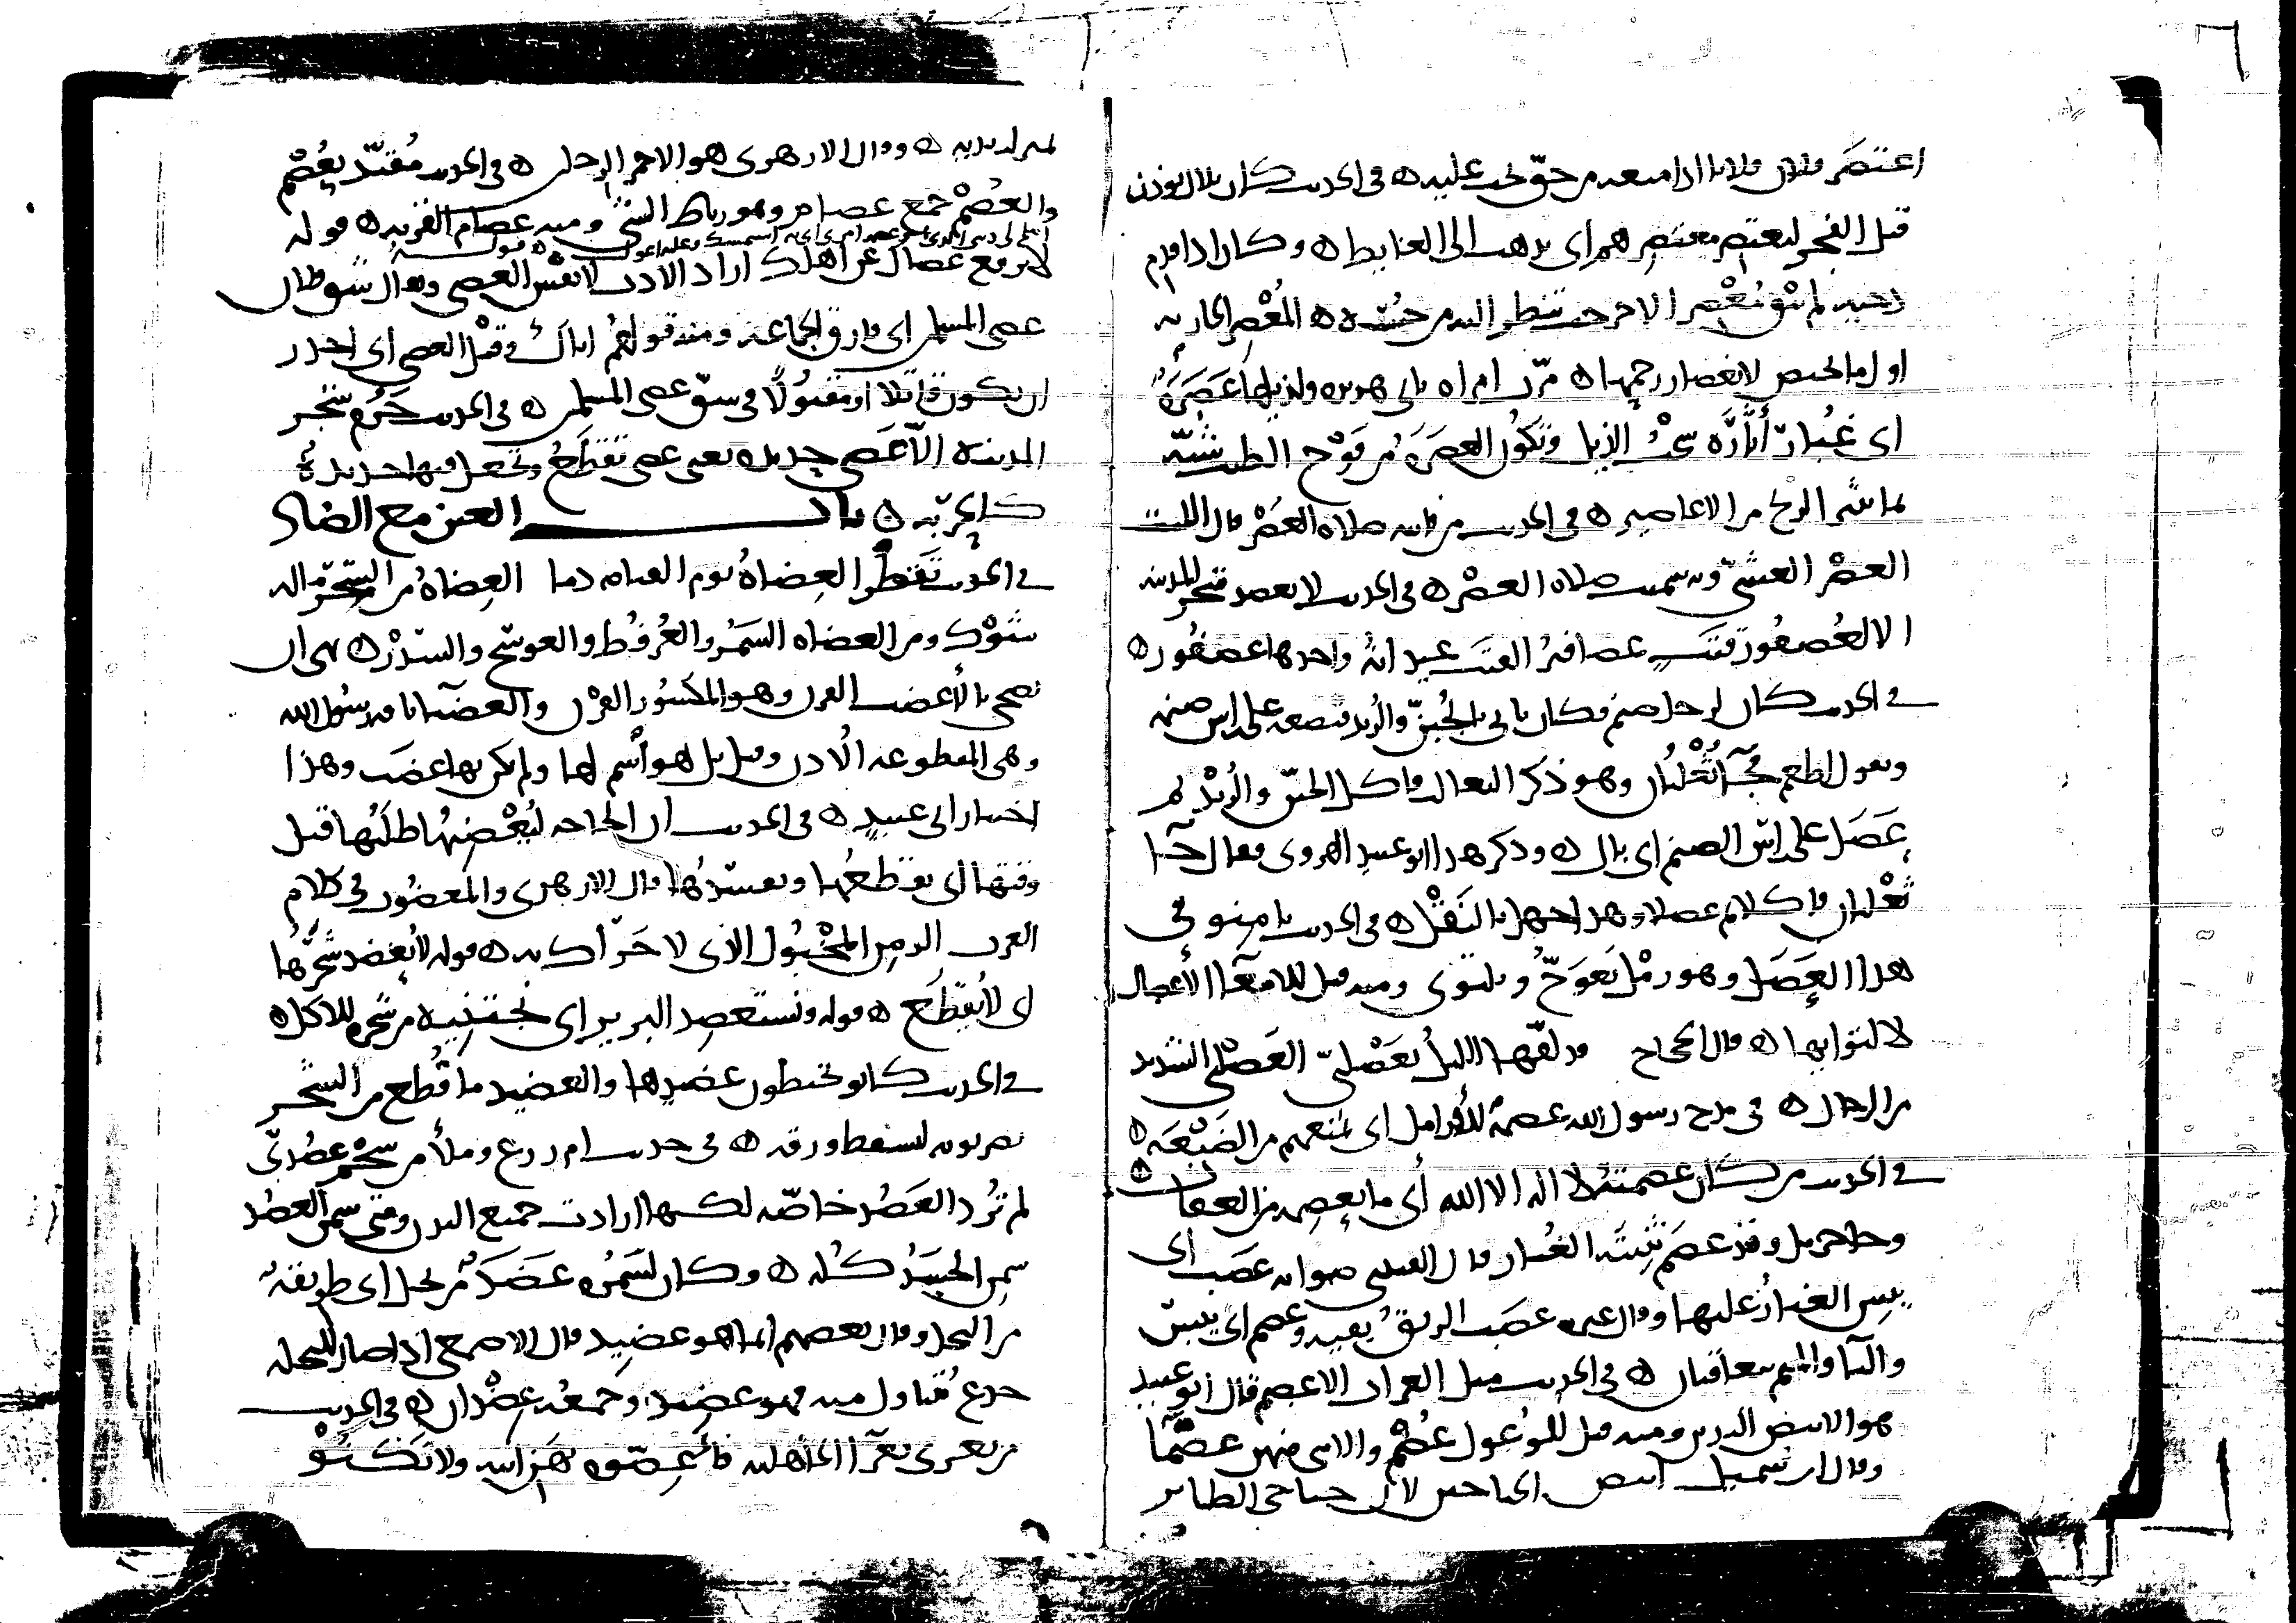 اعتصر فلان فلانا اذا منعه من حق يجب عليه ه في الحديث كان بلال يوذن
قبل الفجر ليعتصر معتصرهم اي يذهب الى الغايط ه وكان اذا قدم
دحية لم تبق معصر الا خرجت تنظر اليه من حسنه ه المعصر الجارية
اول ما تحيض لانعصار رحمها ه مرت امراة بابي هريرة ولذيلها عصرة
اي غبار اثاره سحب الذيل وتكون العصرة من فوح الطيب شبه
بما تثير الريح من الاعاصير ه في الحديث من فاتته صلاة العصر قال الليث
العصر العشي وبه سميت صلاة العصر ه في الحديث لا يعضد شجر المدينة
الا لعصفور قتب عصافير القتب عيدانه واحدها عصفور ه
في الحديث كان لرجل صنم فكان ياتي بالجبن والزبد فيضعه على راس صنمه
ويقول اطعم فجا ثعلبان وهو ذكر الثعالب فاكل الجبن والزبد ثم
عصل على راس الصنم اي بال ه وذكر هذا ابو عبيد الهروي فقال فجا
ثعلبان فاكلا ثم عصلا وهذا جهل بالنقل ه في الحديث يامنو في
هذا العصل وهو رمل يعوج ويلتوى ومنه قيل للامعا الاعصال
لالتوايها ه قال الحجاج قد لفها الليل بعصلبي العصلبي الشديد
من الرجال ه في مدح رسول الله عصمة للارامل اي يمنعهم من الضيعة ه
في الحديث من كان عصمته لا اله الا الله اي ما يعصمه من العقاب ه
وجا جبريل وقد عصم ثنيته الغبار قال القتيبي صوابه عصب اي
يبس الغبار عليها وقال غيره عصب الريق بفيه وعصم اي يبس
والبا والميم يتعاقبان ه في الحديث مثل الغراب الاعصم قال ابو عبيد
هو الابيض اليدين ومنه قيل للوعول عصم والانثى منهن عصما
وقال ابن شميل ابيض الجناحين لان جناحي الطاير
بمنزلة يديه ه وقال الازهري هو الاحمر الرجلين ه في الحديث مقيد بعصم
والعصم جمع عصام وهو رباط الشي ومنه عصام القربة ه قوله
لا ترفع عصاك عن اهلك اراد الادب لا نفس العصى ويقال شق فلان
عصى المسلمين اي فارق الجماعة ومنه قولهم اياك وقتيل العصى اي احذر
ان يكون قاتلا او مقتولا في شق عصى المسلمين ه في الحديث حرم شجر
المدينة الا عصى حديدة يعني عصى تقطع وتجعل فيها حديدة
كالحربة ه باب العين مع الضاد
في الحديث تقطر العضاة يوم القيامة دما العضاة من الشجر ماله
شوك ومن العضاه السمر والعرفط والعوسج والسدر ه نهى ان
يضحى بالاعضب القرن وهو المكسور القرن والعضبا ناقة رسول الله
وهي المقطوعة الاذن وقيل بل هو اسم لها ولم يكن بها عضب وهذا
اختيار ابي عبيد ه في الحديث ان الحاجة ليعضبها طلبها قبل
وقتها اي يقطعها ويفسدها قال الازهري والمعضوب في كلام
العرب الزمن المخبول الذي لا حراك به ه قوله لا يعضد شجرها
اي لا يقطع ه قوله ونستعضد البرير اي نجتنيه من شجره للاكل ه
في الحديث كانو يخبطون عضيدها والعضيد ما قطع من الشجر
يضربونه ليسقط ورقه ه في حديث ام زرع وملأ من شحم عضدي
لم ترد العضد خاصة لكنها ارادت جميع البدن ومتى سمن العضد
سمن الجسد كله ه وكان لسمره عضد من نخل اي طريقة
من النخل وقال بعضهم انما هو عضيد قال الاصمعي اذا صار للنخلة
جذع يتناول منه فهو عضيد وجمعه عضدان ه في الحديث
من تعزى بعزا الجاهلية فاعضوه بهن ابيه ولا تكنو